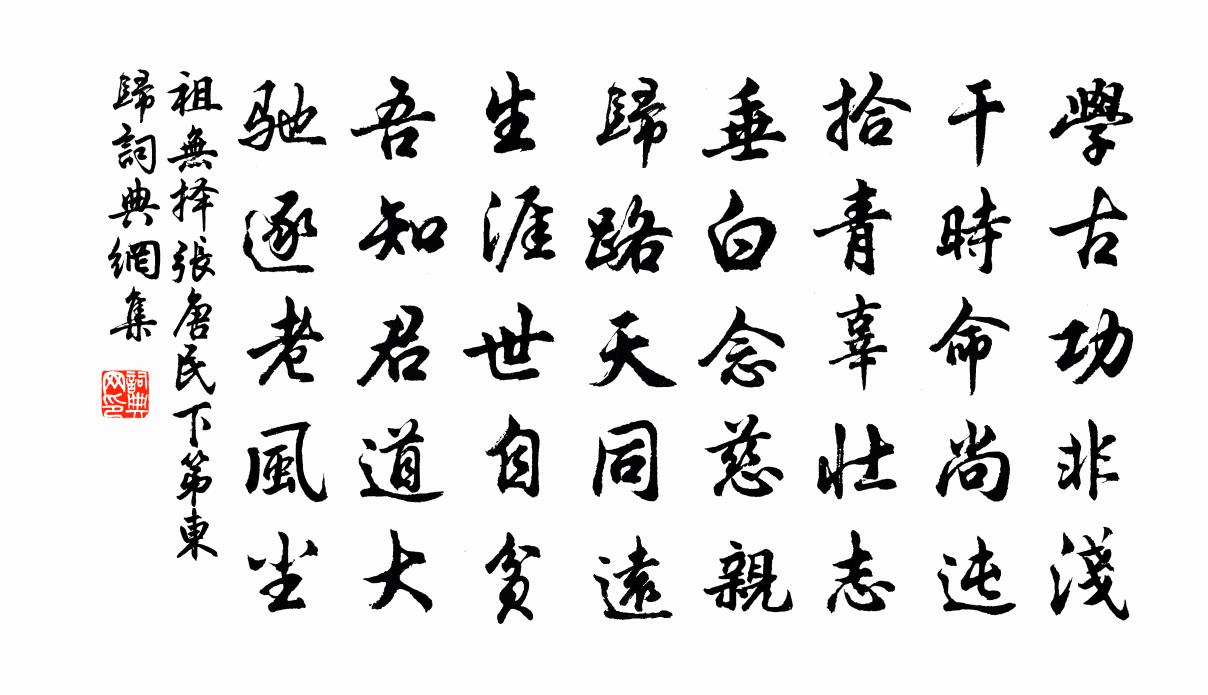 學古功非淺
干時命尚迍
拾青辜壯志
垂白念慈親
歸路天同遠
生涯世自貧
吾知君道大
馳逐老風尘
祖無择張唐民下第東
歸詞典網集
詞典
网印